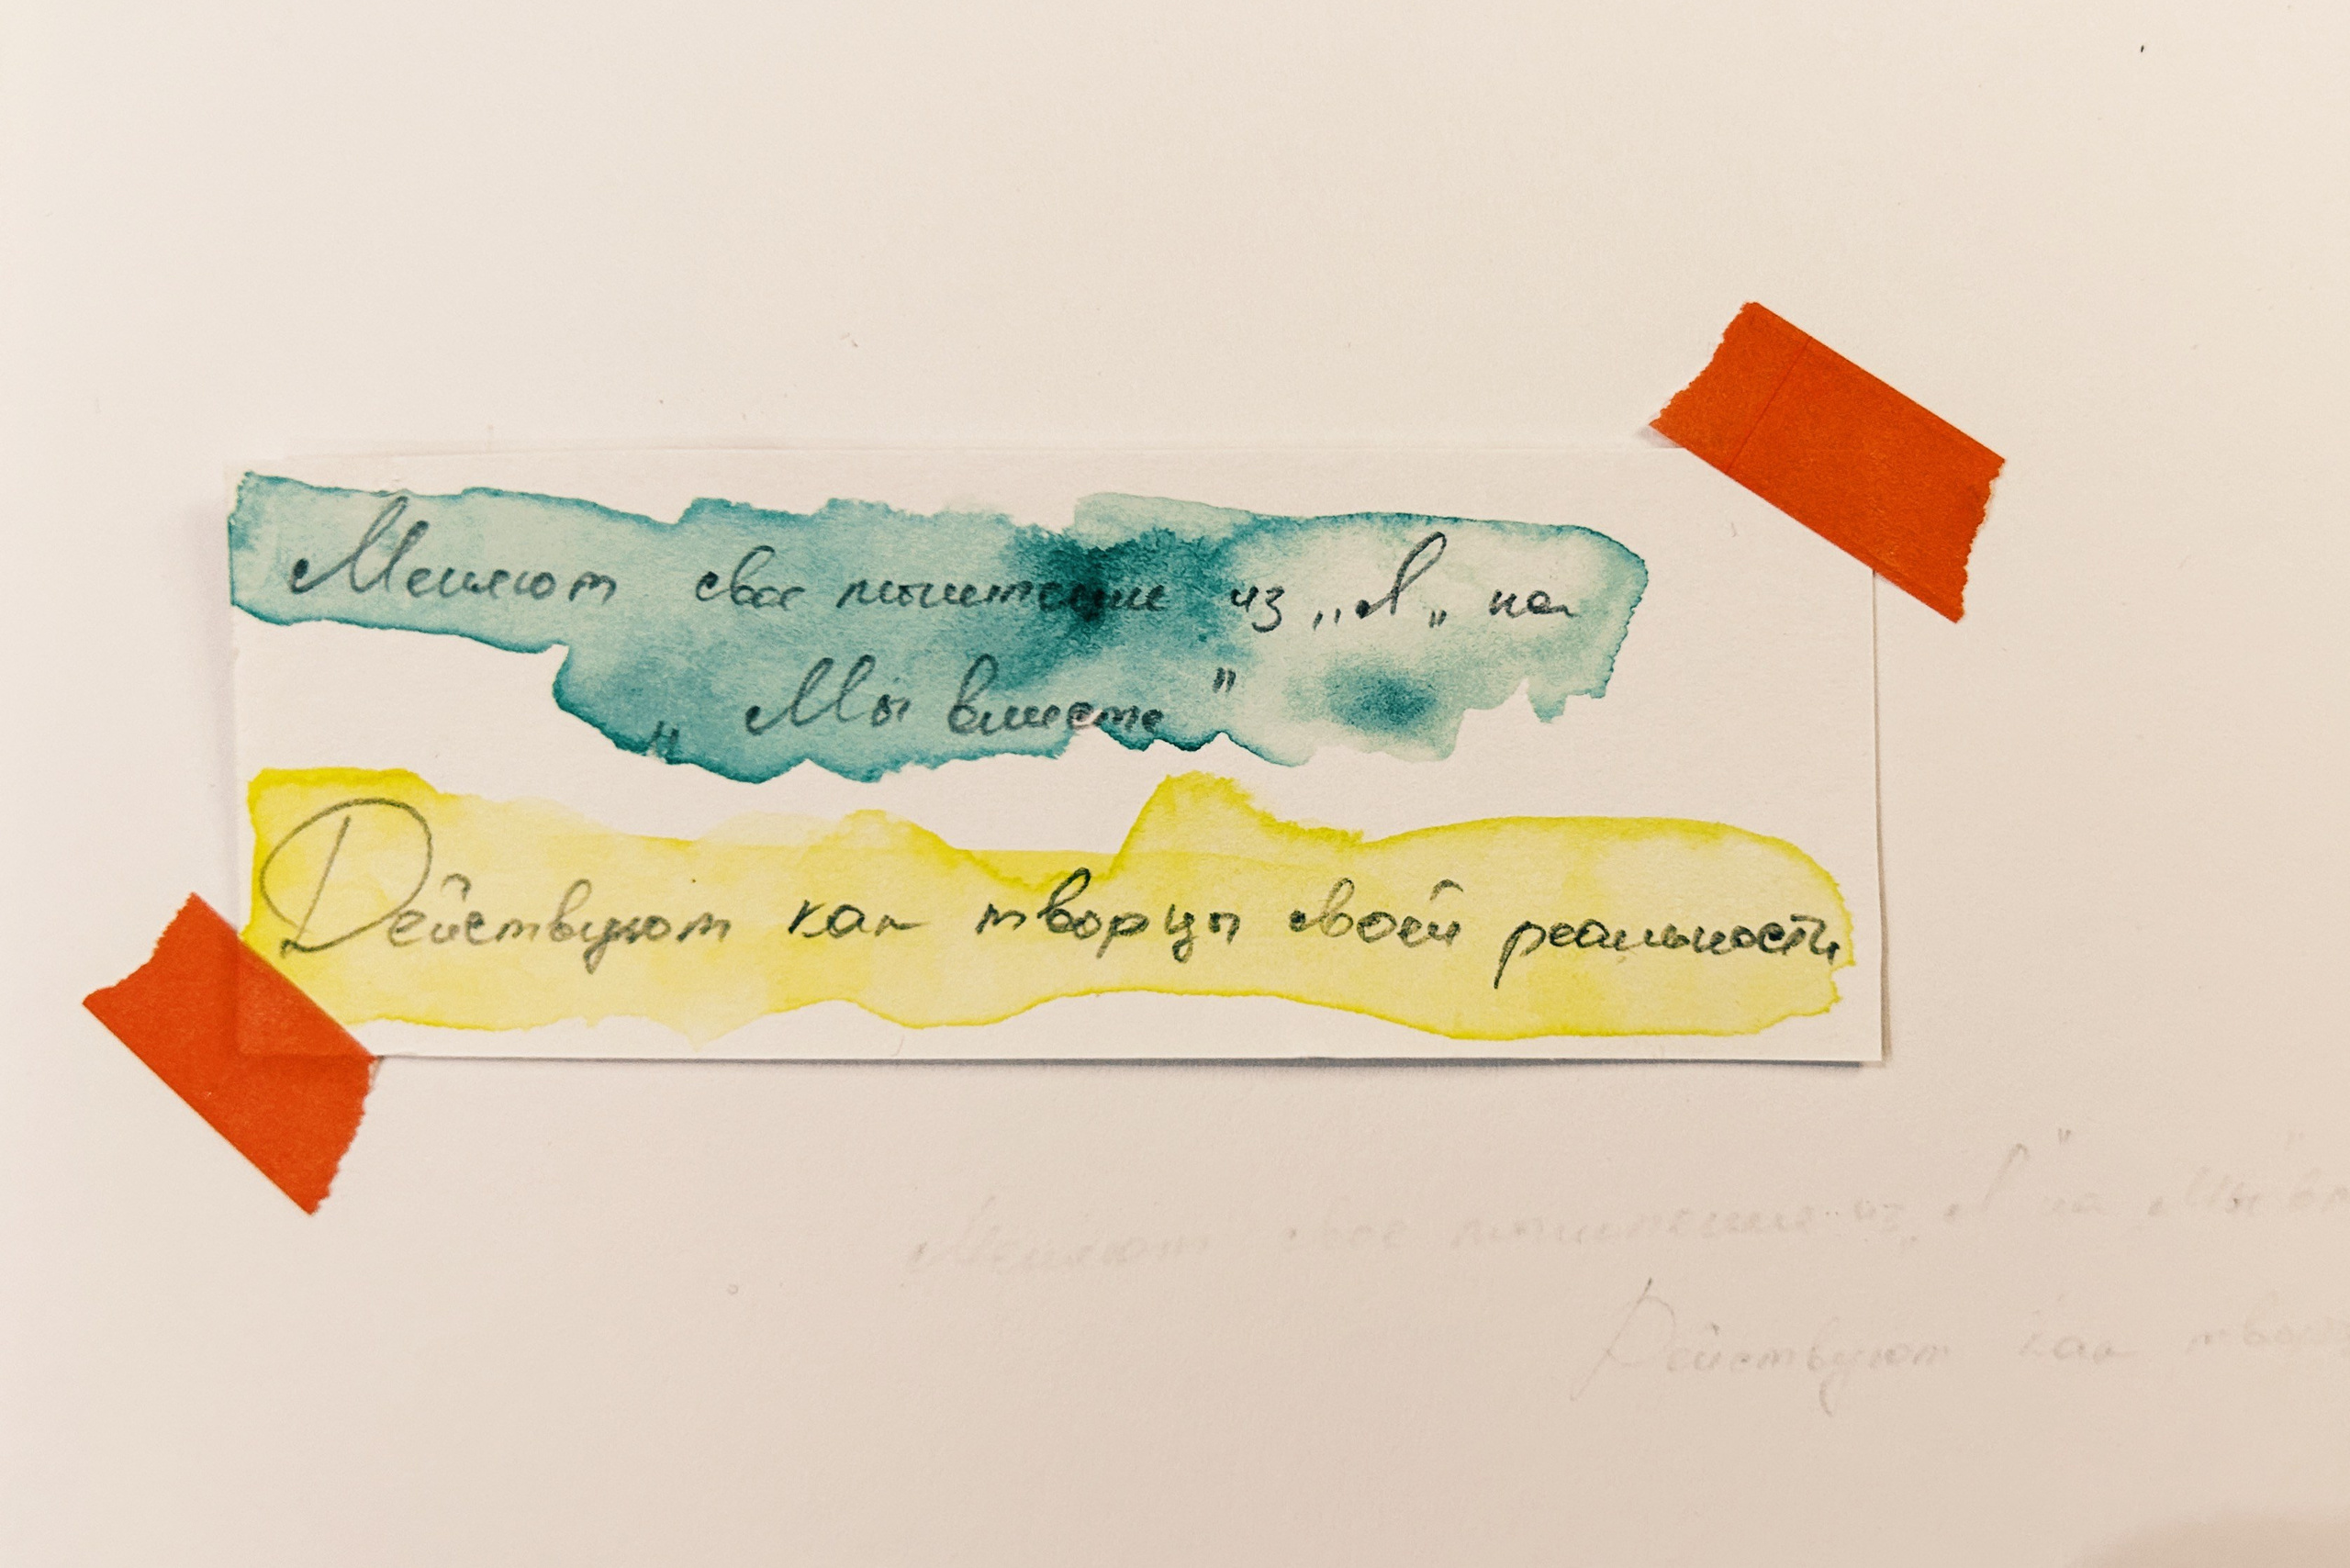 Меняют свое мышление из „Я„ на
„Мы вместе"
Действуют как творцы своей реальности
Меняют свое мышление из „Я" на Мы
Действуют как